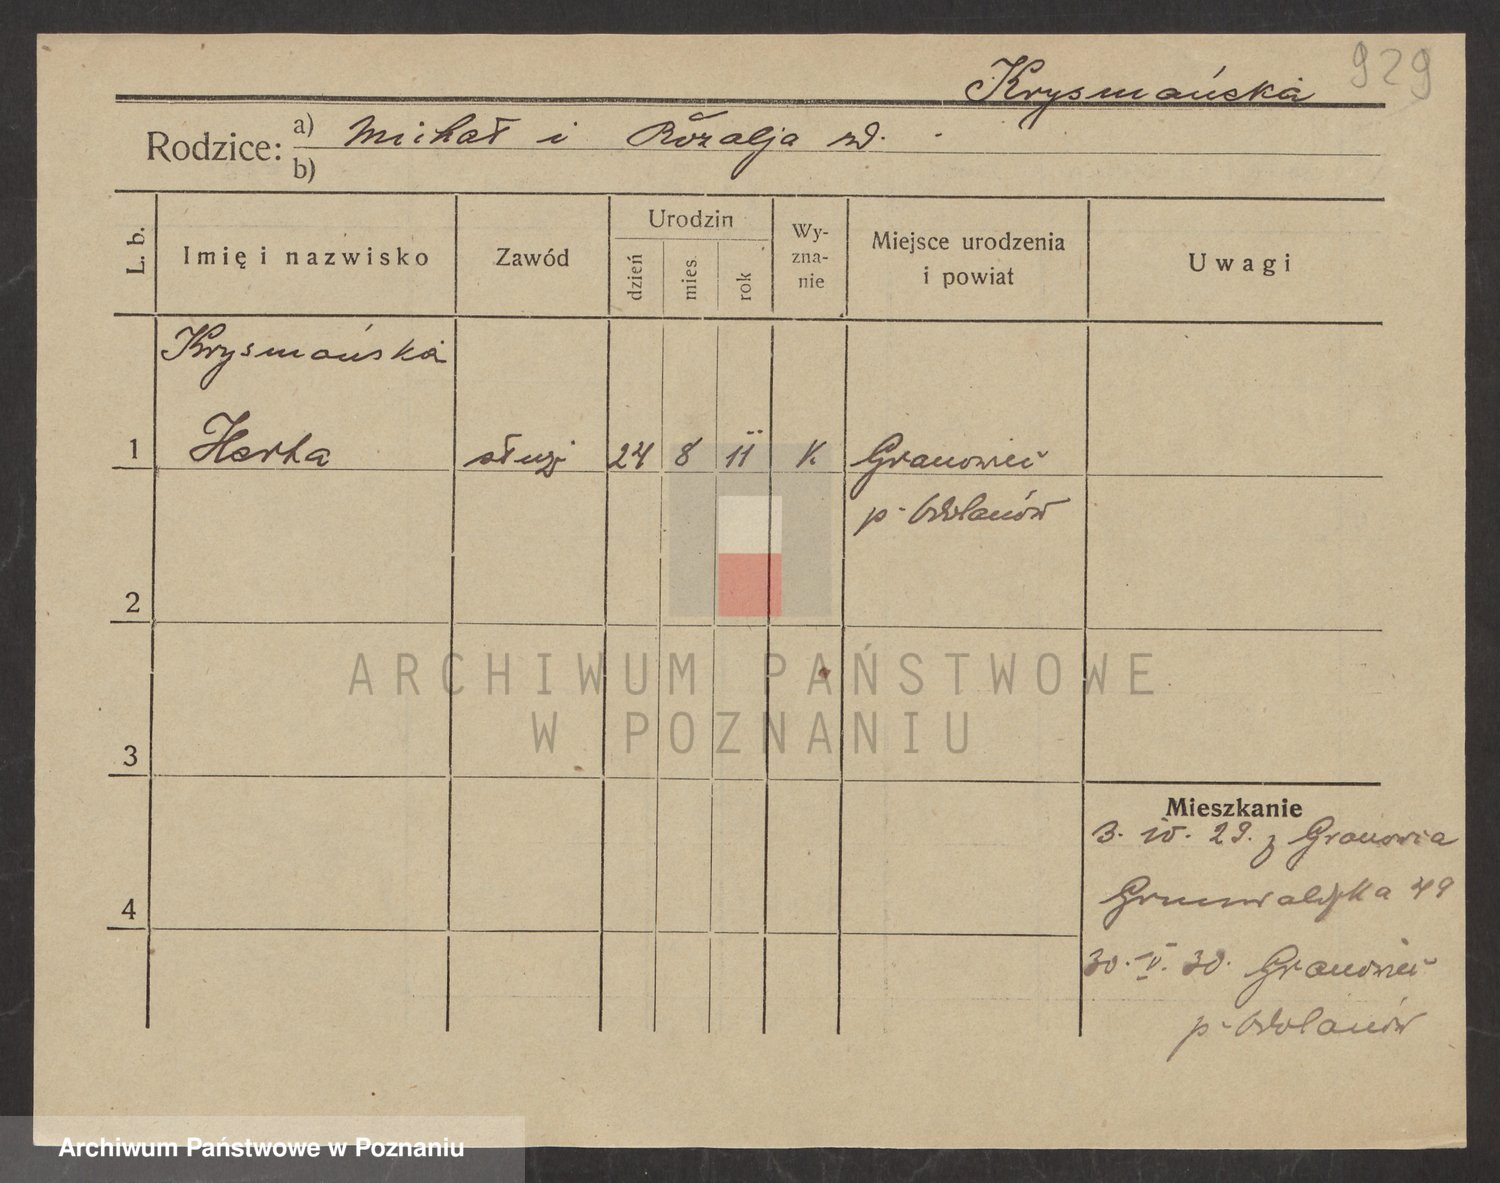 929
Krysmańska
Rodzice: a) Michał i Rozalja zd.
b)
L. b.
Imię i nazwisko
Zawód
Urodzin
dzień
mies.
rok
Wy-
zna-
nie
Miejsce urodzenia
i powiat
Uwagi
Krysmańska
1 Herta służ 24 8 11 k. Granowiec
p. Odolanów
2
3
4
Mieszkanie
3. IV. 29. z Granowca
Grunwaldzka 49
30. V. 30. Granowiec
p. Odolanów
ARCHIWUM PAŃSTWOWE
W POZNANIU
Archiwum Państwowe w Poznaniu